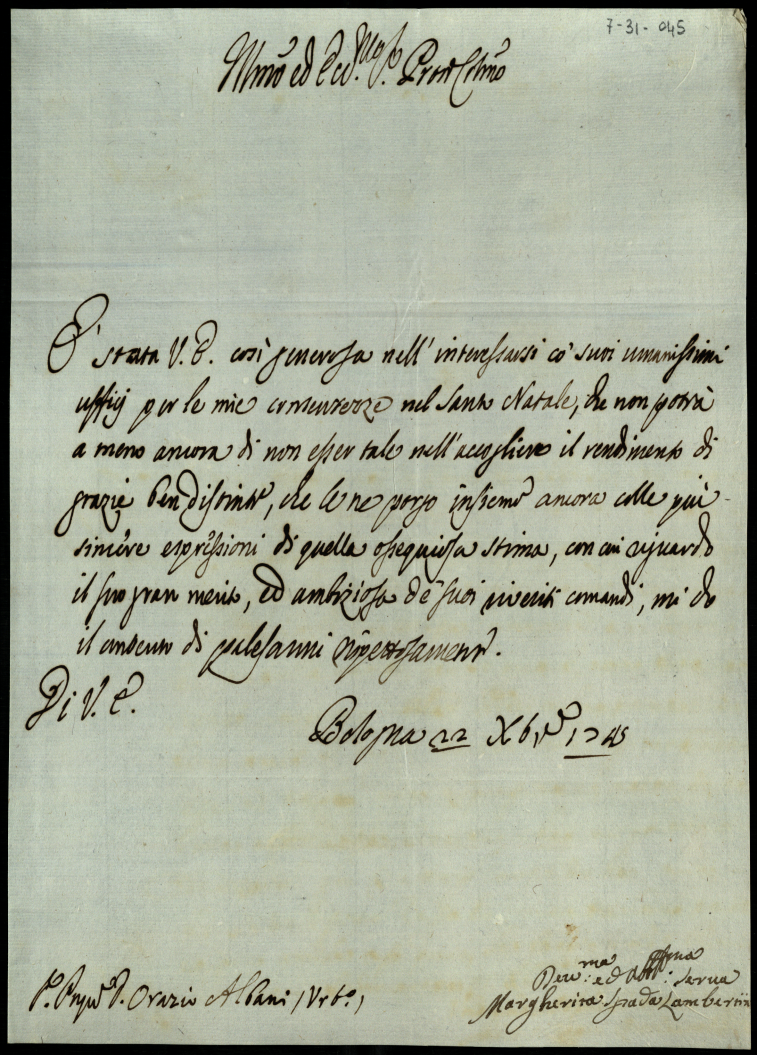 7-31-045
Illmo ed Ecc.mo Sr. Pron Colmo
È stata V. E. così generosa nell'interessarsi co' suoi umanissimi
uffizj per le mie contentezze nel Santo Natale, che non potrà
a meno ancora di non esser tale nell'accogliere il rendimento di
grazie ben distinto, che le ne porgo insieme ancora colle più
sincere espressioni di quella ossequiosa stima, con cui riguardo
il suo gran merito, ed ambiziosa de' suoi riveriti comandi, mi do
il contento di palesarmi rispettosamente.
Di V. E.
Bologna 22 Xbre 1745
Sr. D. Orazio Albani (Urbo.)
Dev.ma ed Obb.: Serva
Margherita Spada Lambertini